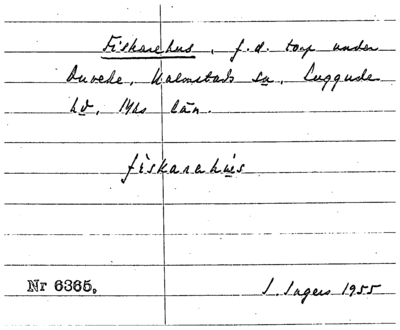 Fiskarehus, f.d. torp under
Duveke, Halmstads sn, Luggude
hd, Mhs län.
fiskarahus
Nr 6365.
I. Ingers 1955